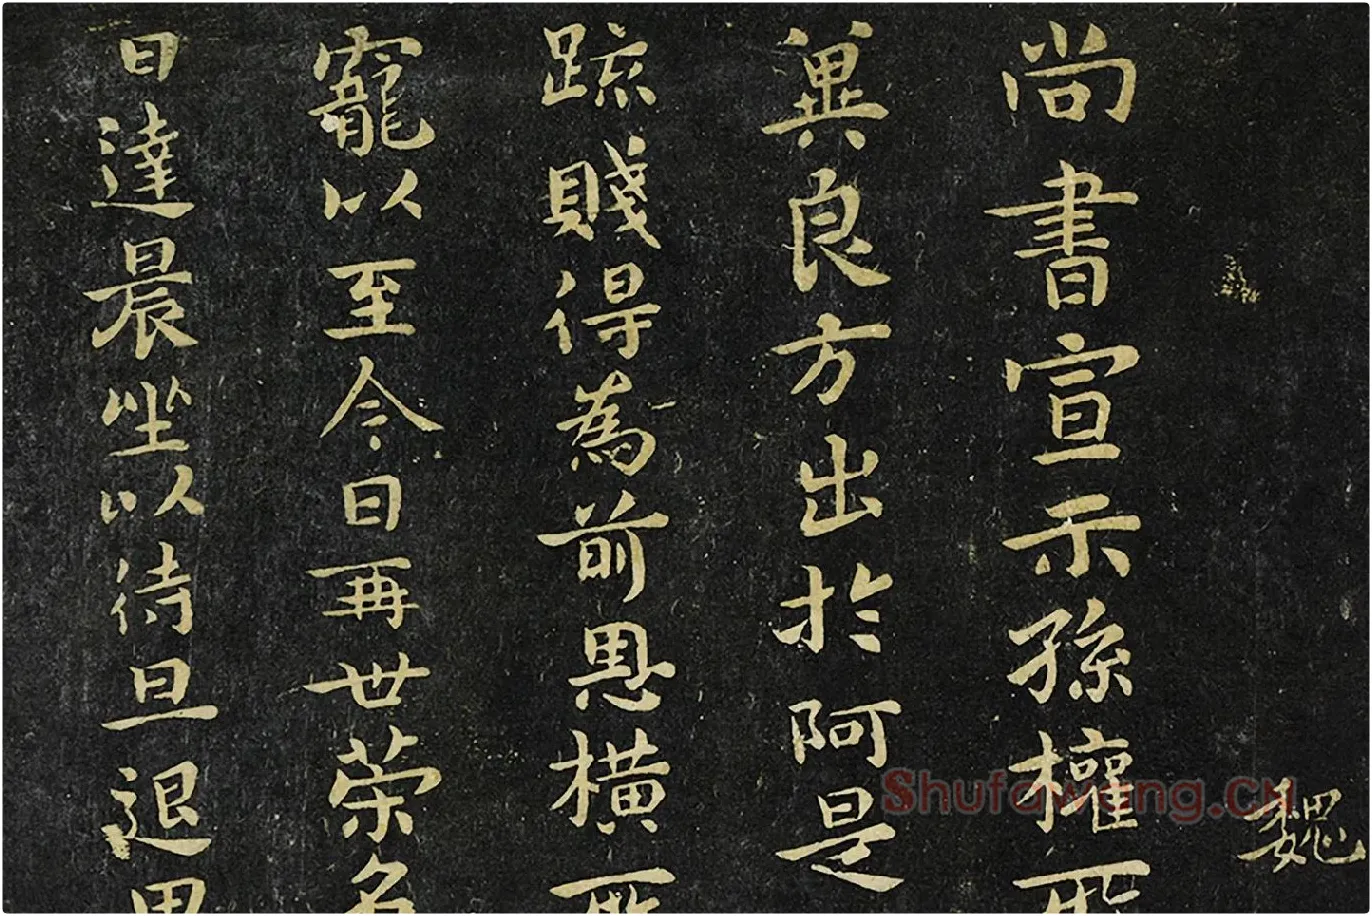 魏
尚書宣示孫權所
冀良方出於阿是
䟽賤得為前恩横所
寵以至今日再世荣名
日達晨坐以待旦退
Shufawang.CN